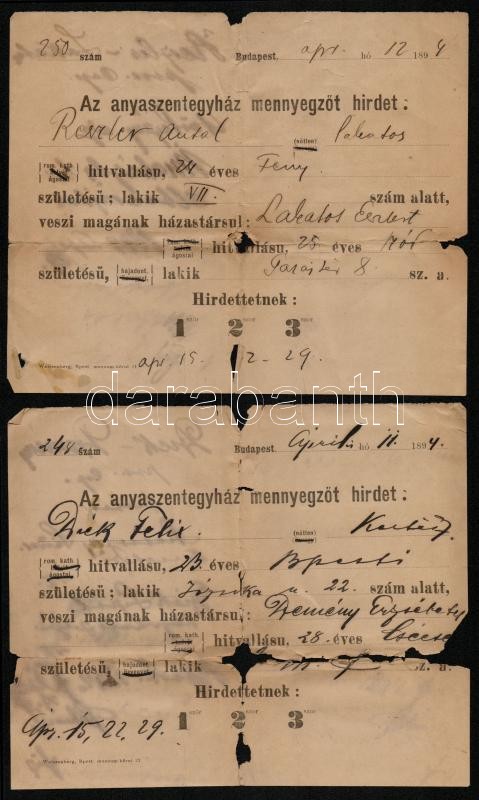 250 szám Budapest, apr. hó 12 1894
Az anyaszentegyház mennyegzőt hirdet:
Antal (nőtlen) Lakatos
róm. kath. ágostai hitvallásu, 24 éves
születésü; lakik VII. szám alatt,
veszi magának házastársul: Lakatos
ágostai hitvallásu, 25 éves
születésü, hajadont, lakik 8 sz. a.
Hirdettetnek:
1 ször 2 szor 3 szor
apr. 15. 22 - 29.
darabanth
248 szám Budapest, April hó 11. 1894.
Az anyaszentegyház mennyegzőt hirdet:
Dick Felix. (nőtlen) Kertész
róm. kath. ágostai hitvallásu, 23. éves Bpesti
születésü; lakik u. 22. szám alatt,
veszi magának házastársul: Demény Erzsébetet
róm. kath. ágostai hitvallásu, 28. éves
születésü, hajadont, lakik sz. a.
Hirdettetnek:
1 ször 2 szor 3 szor
Apr. 15, 22, 29.